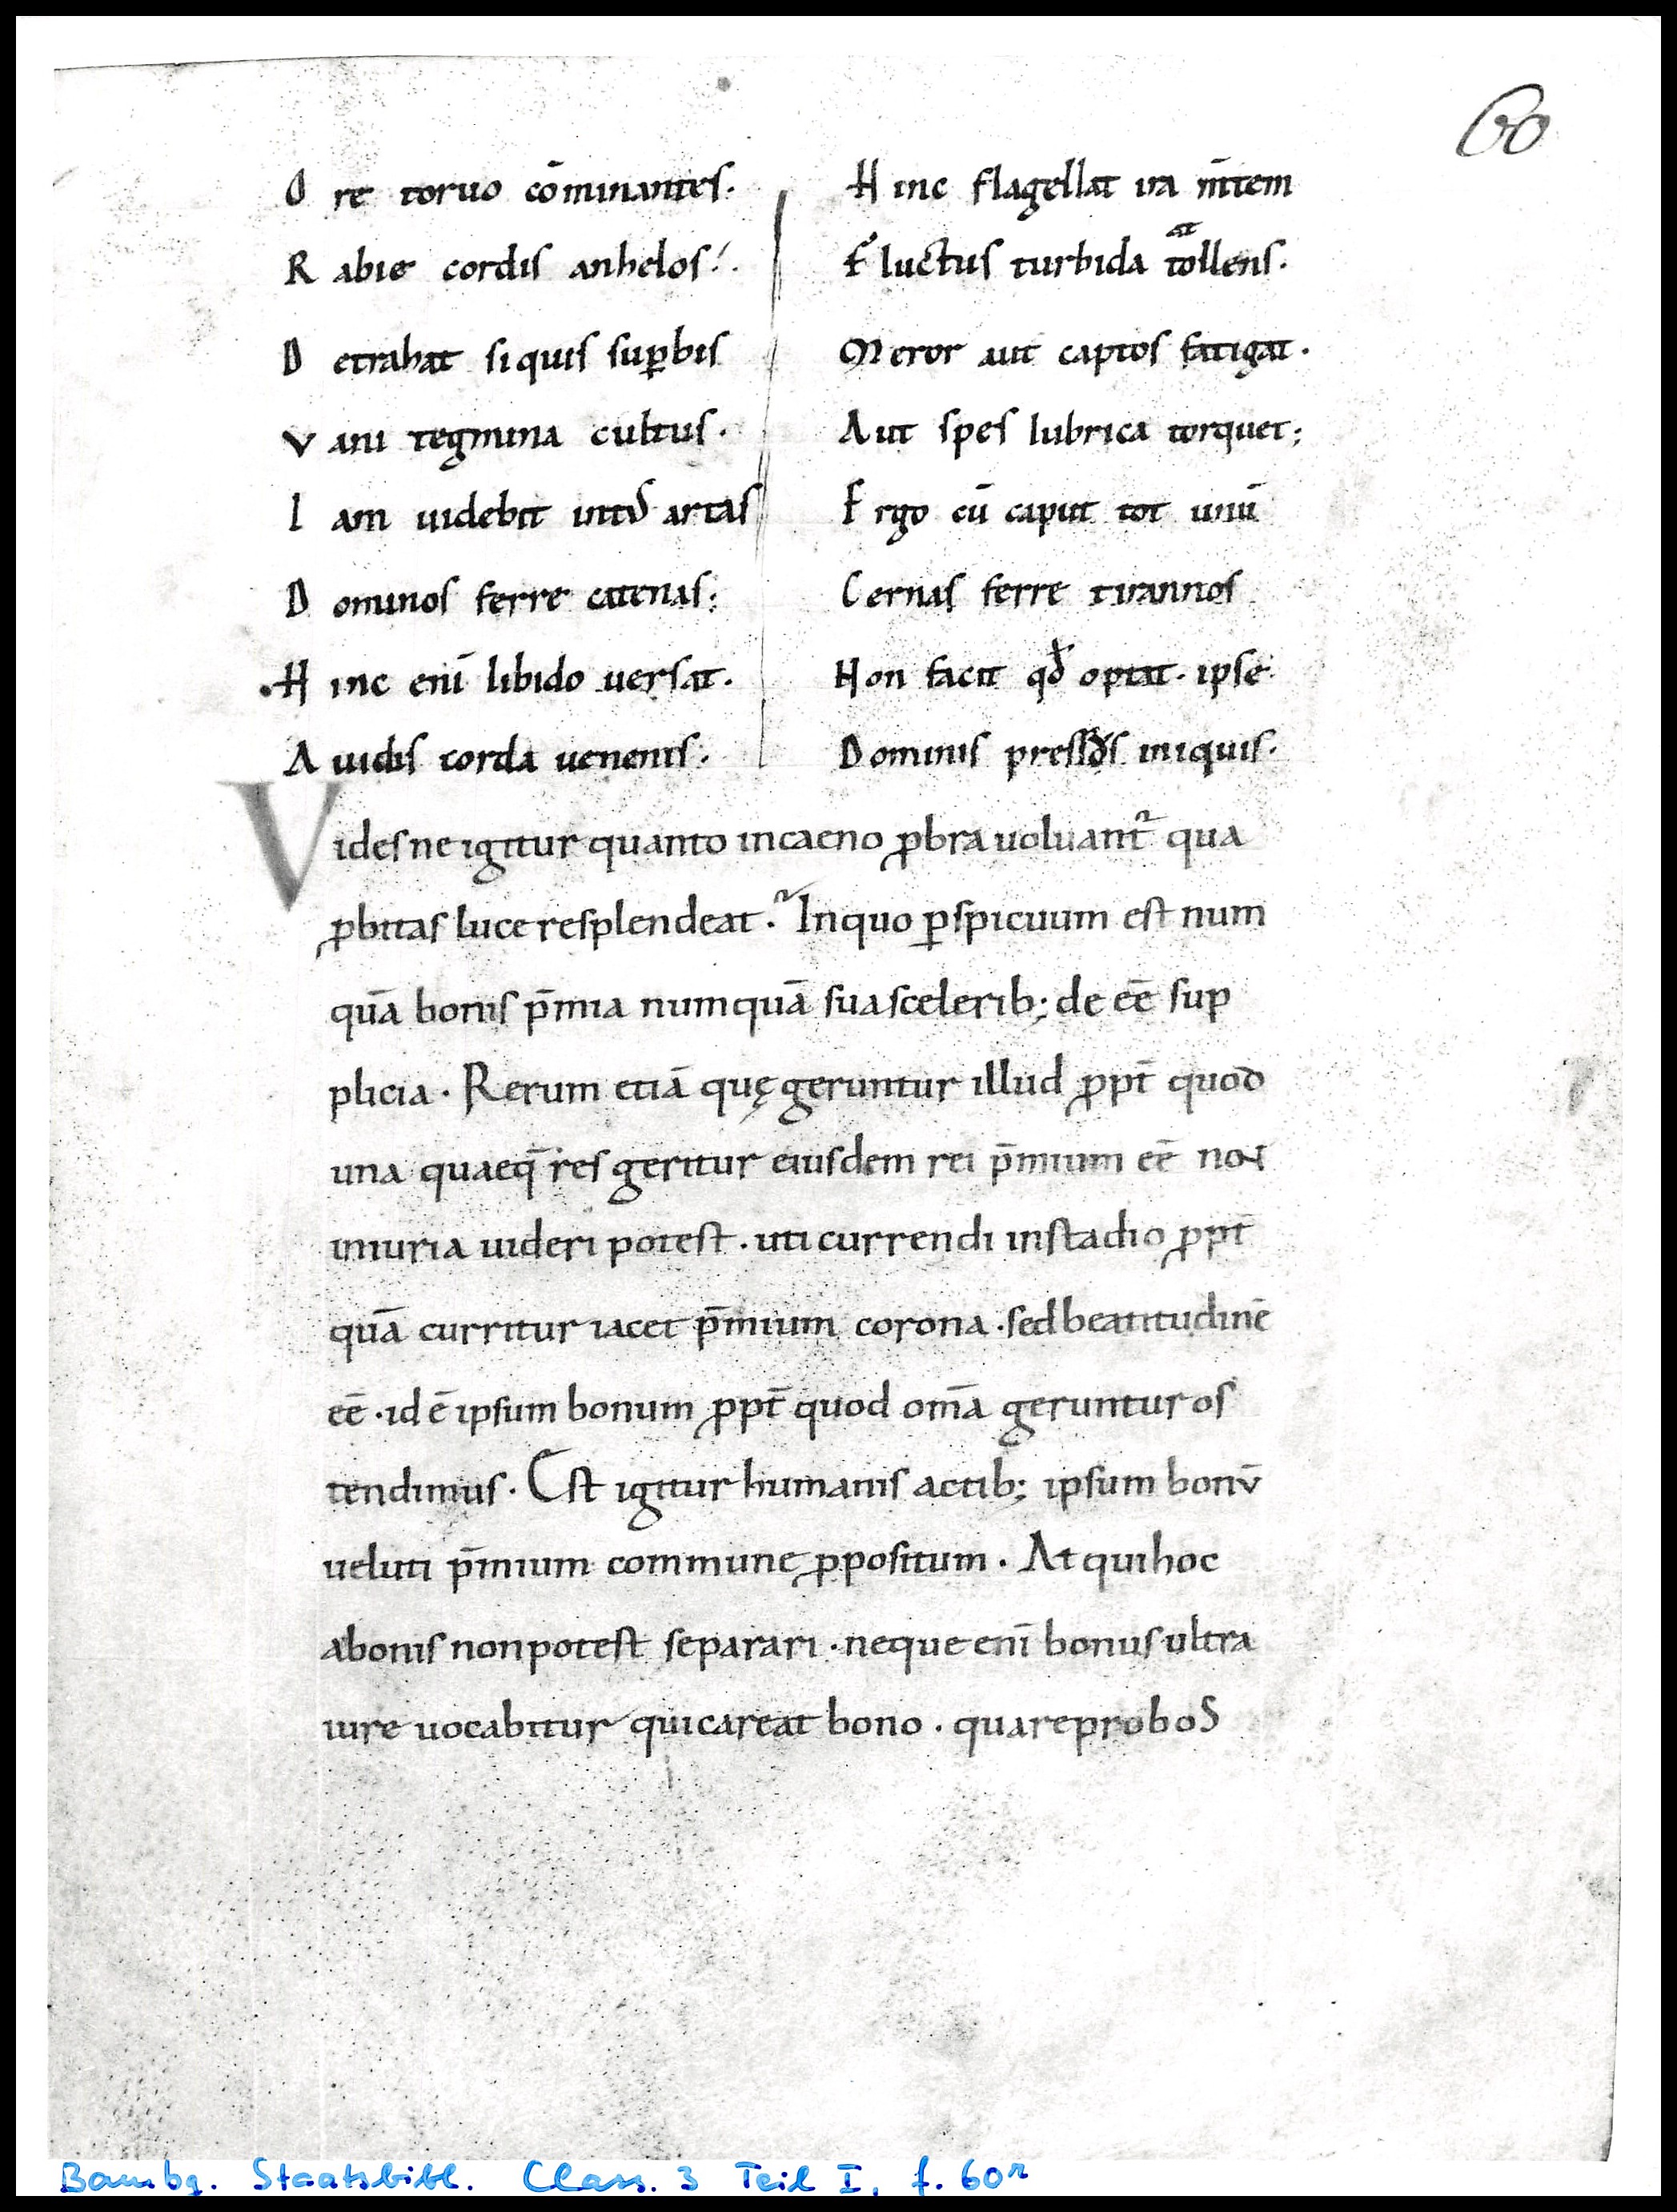 60
O re toruo cōminantes.
R abie cordis anhelos.
D etrahat siquis suꝑbis
V ani tegmina cultus.
I am uidebit int᷒ artas
D ominos ferre catenas;
H inc enī libido uersat.
A uidis corda uenenis.
H inc flagellat ira m̄tem
F luctus turbida tollens.
at
M eror aut captos fatigat.
A ut spes lubrica torquet;
E rgo cū caput tot unū
C ernas ferre tirannos
N on facit qđ optat. ipse
D ominis iniquis.
Videsne igitur quanto incaeno ꝓbra uoluant᷑ qua
ꝓbitas luce resplendeat. Inquo ꝑspicuum est num
quā bonis p̄mia numquā suascelerib; de eē sup
plicia. Rerum etiā quę geruntur illud ꝓpt̄ quod
una quaeq̄ res geritur eiusdem rei p̄mium eē non
iniuria uideri potest. uti currendi instadio ꝓpt̄
quā curritur iacet p̄mium corona. sed beatitudinē
eē. id ē ipsum bonum ꝓpt̄ quod om̄a geruntur os
tendimus. Est igitur humanis actib; ipsum bonū
ueluti p̄mium commune ꝓpositum. At qui hoc
abonis nonpotest separari. neque enī bonus ultra
iure uocabitur quicareat bono. quareprobos
Bambg. Staatsbibl. Class. 3 Teil I, f. 60r